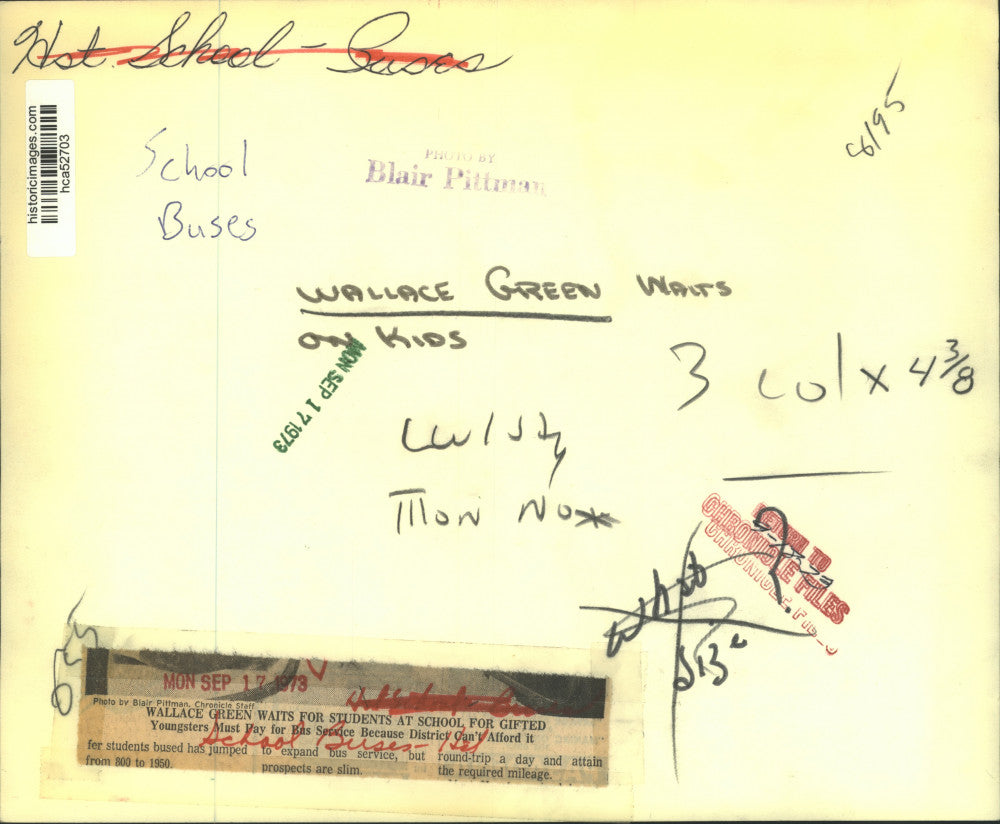 Hst. School - Buses
historicimages.com
hca52703
School
Buses
PHOTO BY
Blair Pittman
WALLACE GREEN WAITS
ON KIDS
MON SEP 17 1973
3 col x 4 3/8
MON
RETURN TO
CHRONICLE FILES
what
?
MON SEP 17 1973
Photo by Blair Pittman, Chronicle Staff
WALLACE GREEN WAITS FOR STUDENTS AT SCHOOL FOR GIFTED
Youngsters Must Pay for Bus Service Because District Can't Afford it
School Buses - Hst
fer students bused has jumped
from 800 to 1950.
to expand bus service, but
prospects are slim.
round-trip a day and attain
the required mileage.